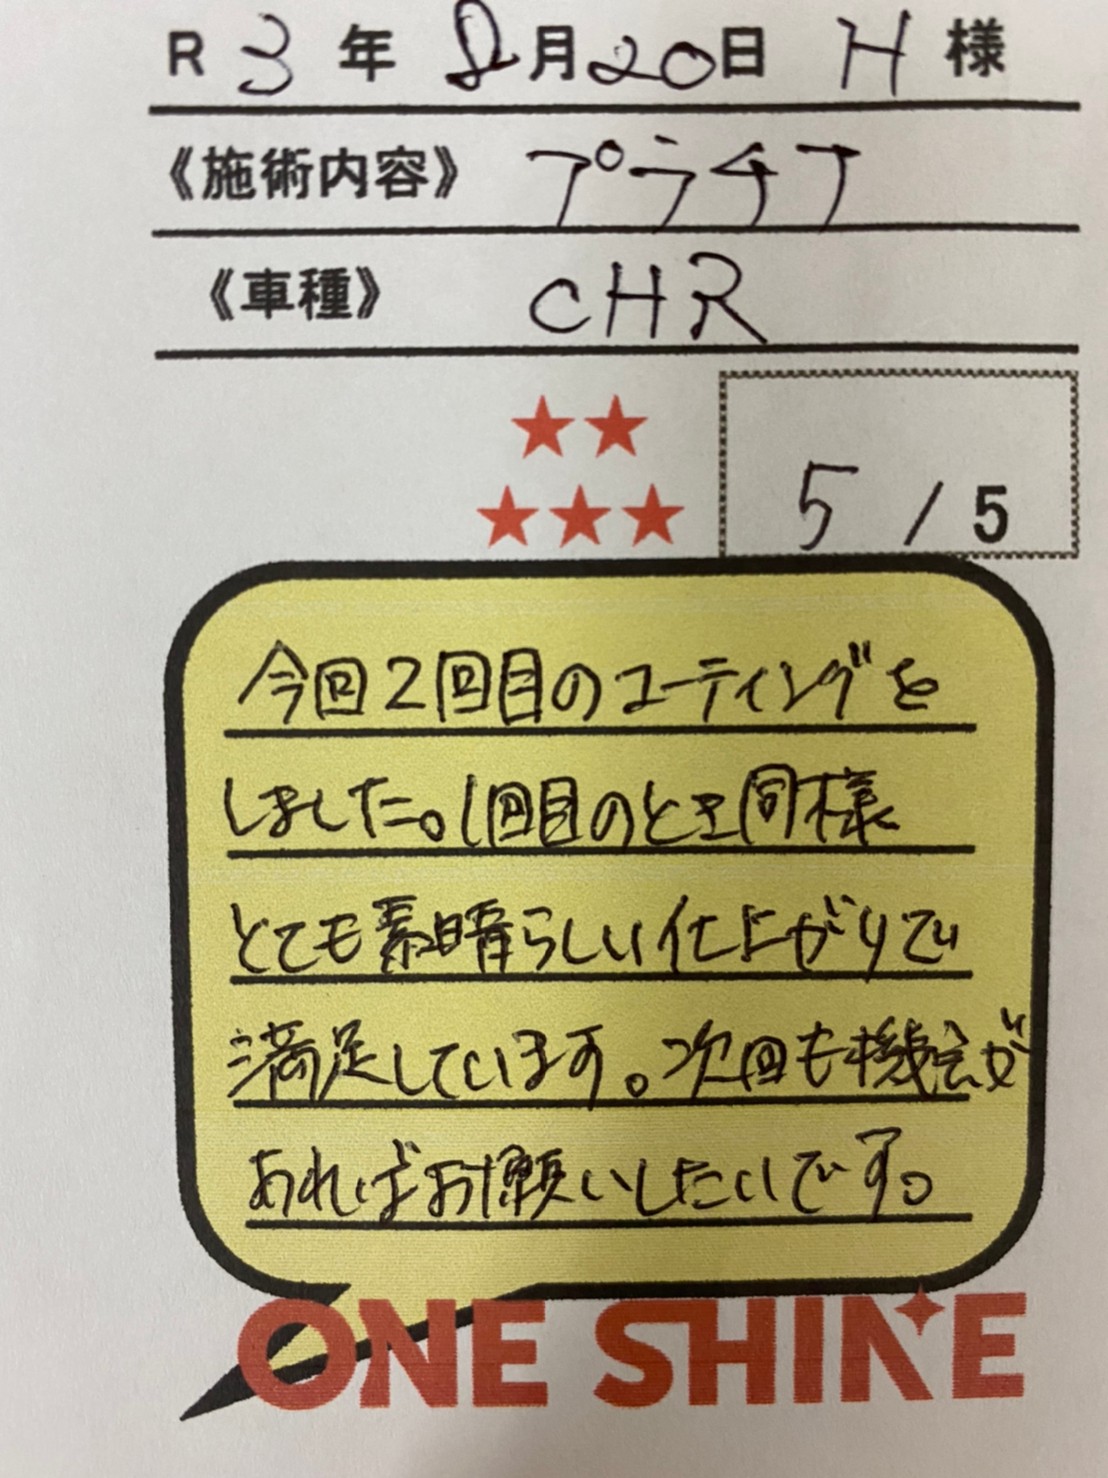 R 3 年 8月20日 H 様
《施術内容》 プラチナ
《車種》 CHR
★★
★★★ 5 / 5
今回2回目のコーティングを
しました。1回目のとき同様
とても素晴らしい仕上がりで
満足しています。次回も機会が
あればお願いしたいです。
ONE SHINE